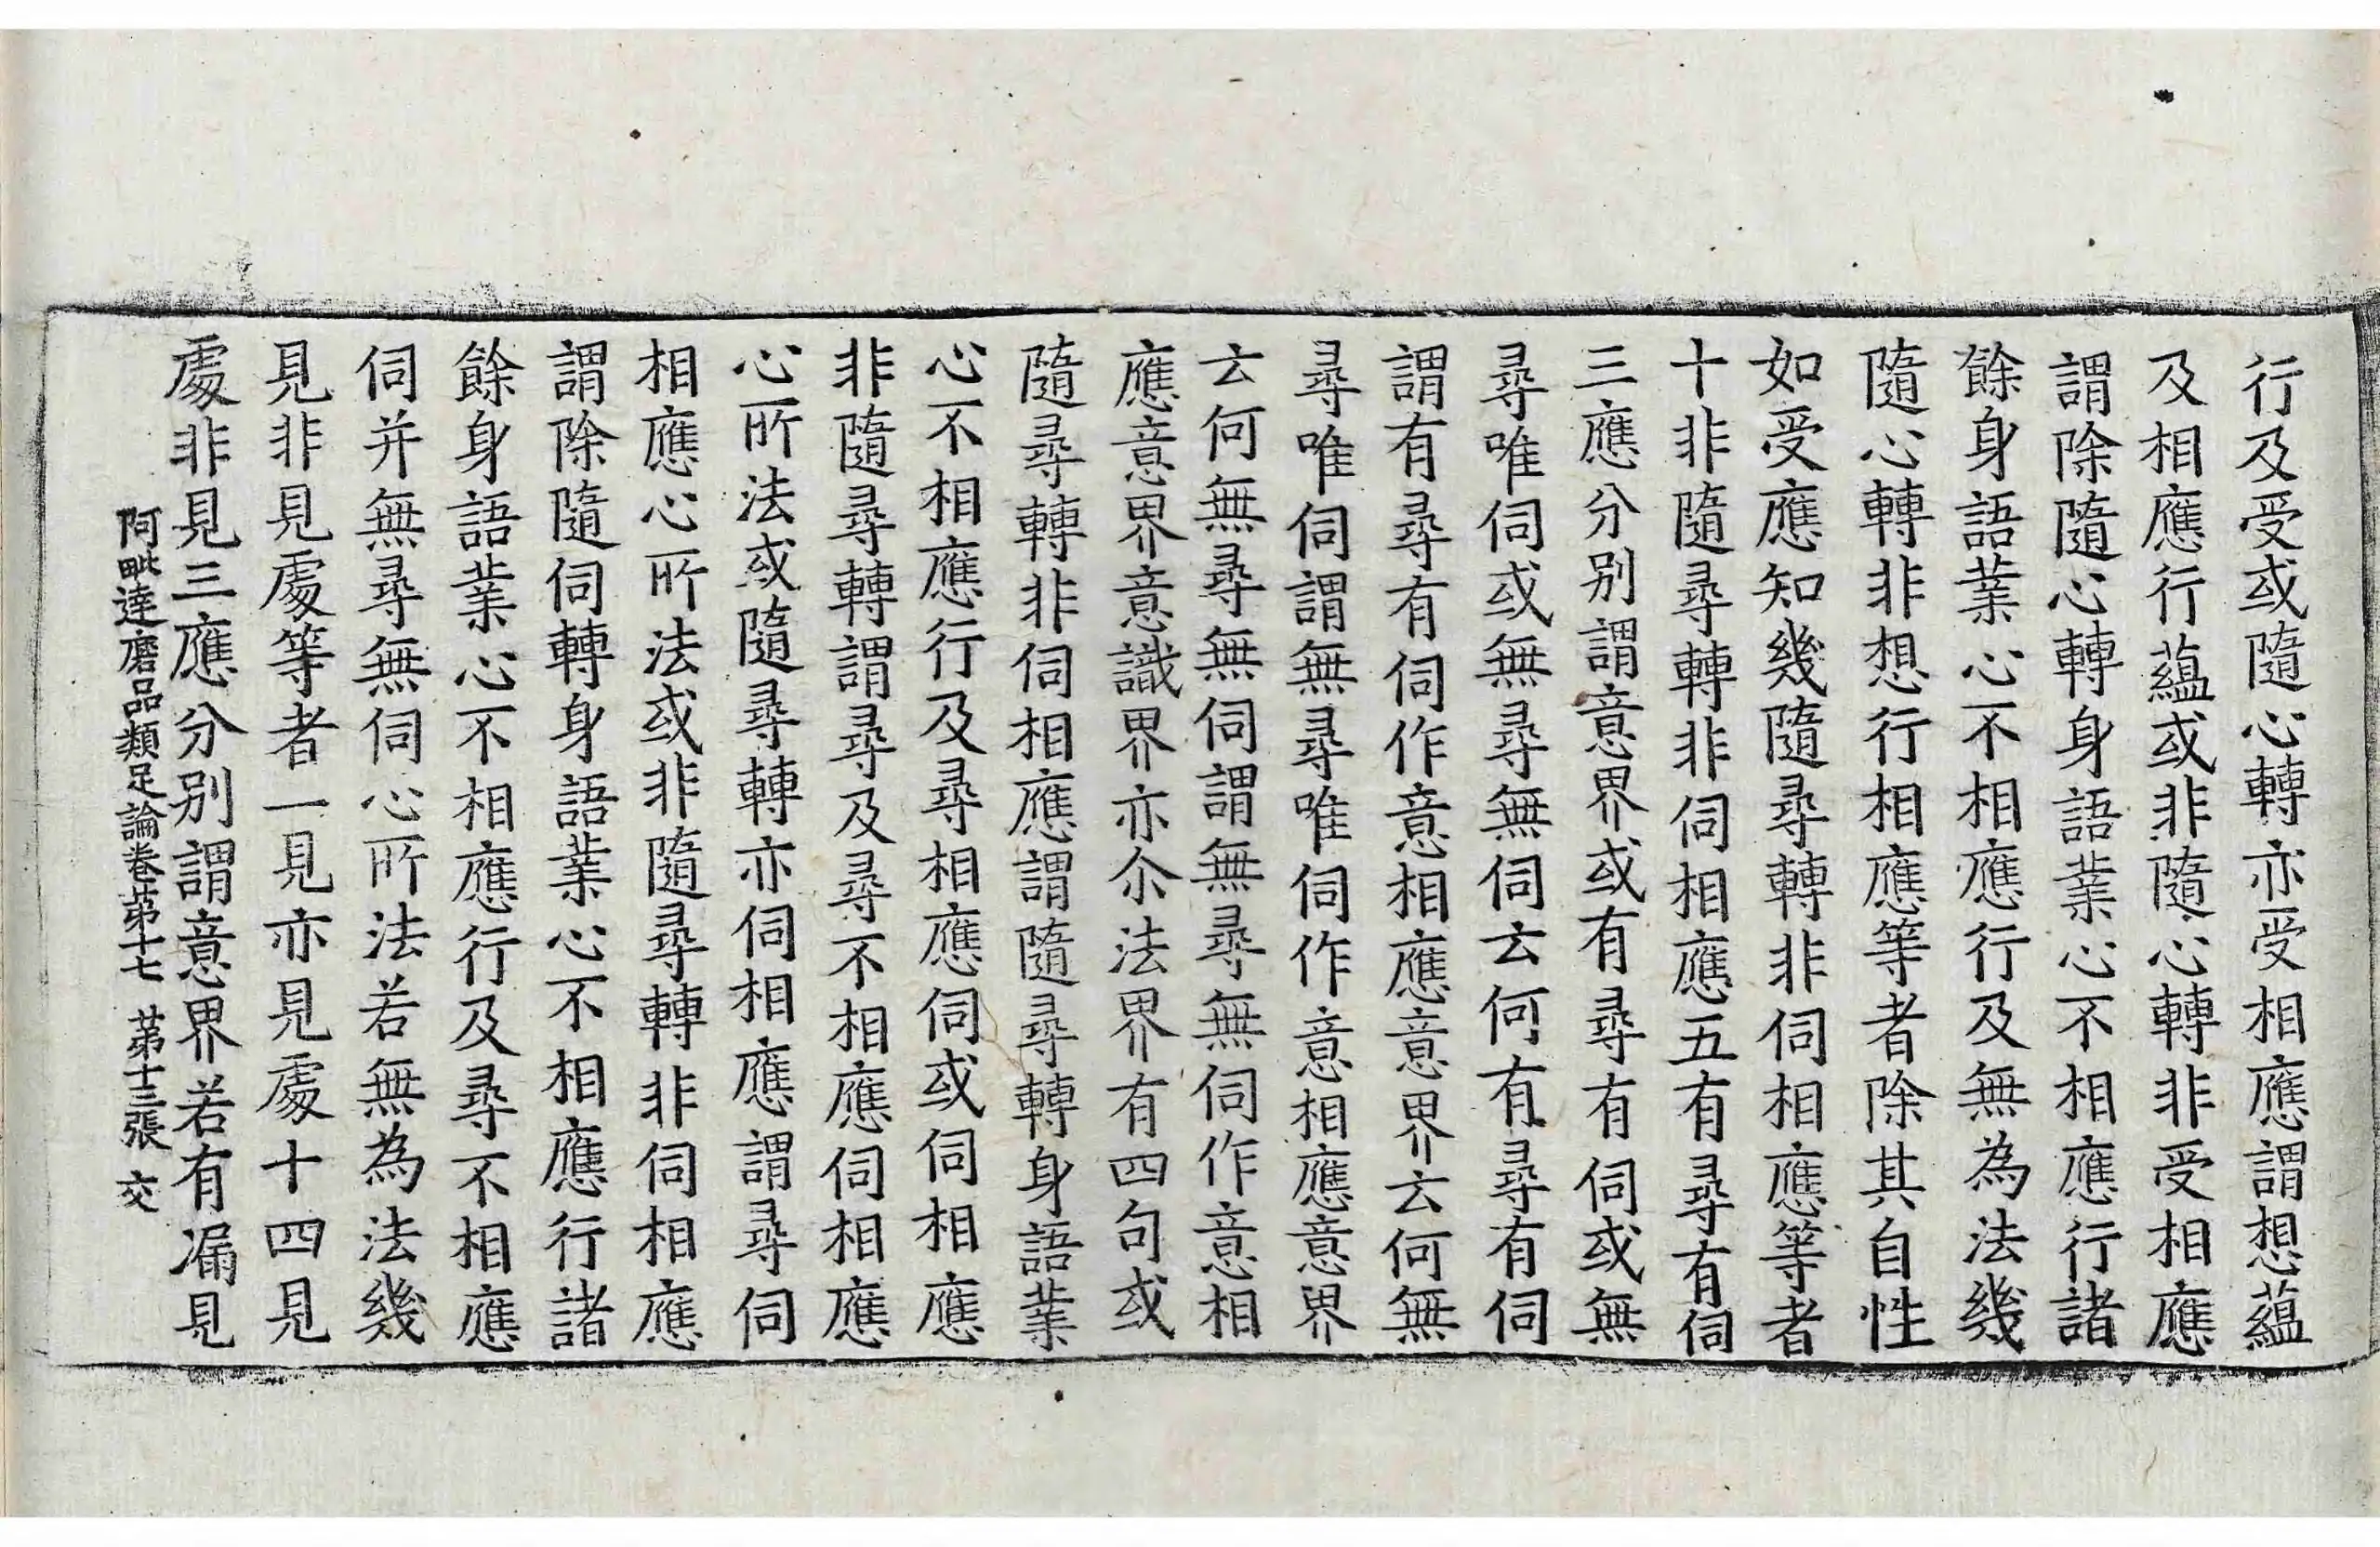 行及受或隨心轉亦受相應謂想蘊
及相應行蘊或非隨心轉非受相應
謂除隨心轉身語業心不相應行諸
餘身語業心不相應行及無為法幾
隨心轉非想行相應等者除其自性
如受應知幾隨尋轉非伺相應等者
十非隨尋轉非伺相應五有尋有伺
三應分別謂意界或有尋有伺或無
尋唯伺或無尋無伺云何有尋有伺
謂有尋有伺作意相應意界云何無
尋唯伺謂無尋唯伺作意相應意界
云何無尋無伺謂無尋無伺作意相
應意界意識界亦尒法界有四句或
隨尋轉非伺相應謂隨尋轉身語業
心不相應行及尋相應伺或伺相應
非隨尋轉謂尋及尋不相應伺相應
心所法或隨尋轉亦伺相應謂尋伺
相應心所法或非隨尋轉非伺相應
謂除隨伺轉身語業心不相應行諸
餘身語業心不相應行及尋不相應
伺并無尋無伺心所法若無為法幾
見非見處等者一見亦見處十四見
處非見三應分別謂意界若有漏見
阿毗達磨品類足論卷苐十七 苐十三張 交